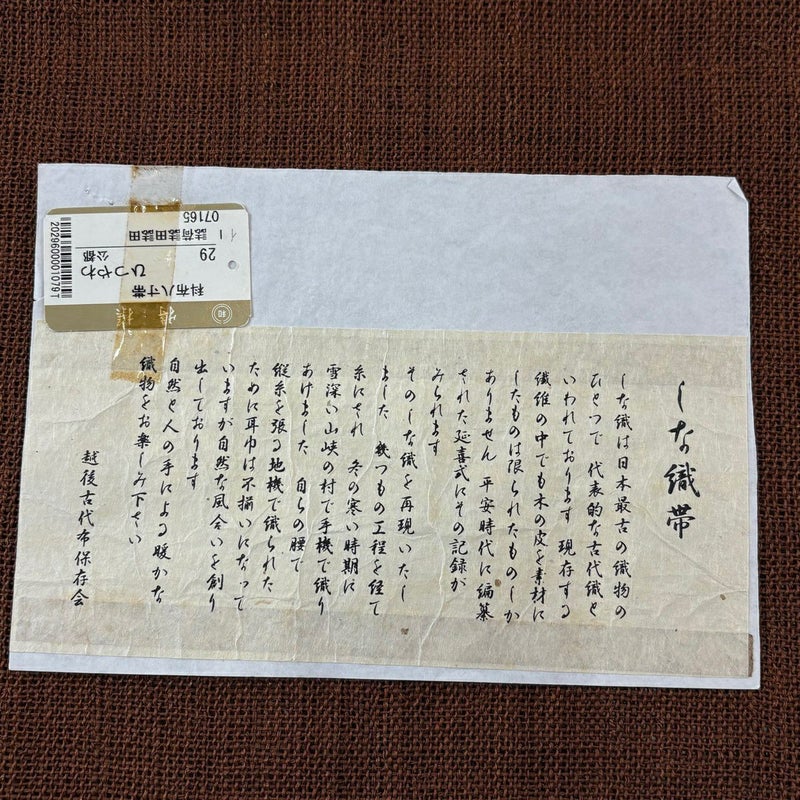 しな織帯
しな織は日本最古の織物の
ひとつで 代表的な古代織と
いわれております 現存する
繊維の中でも木の皮を素材に
したものは限られたものしか
ありません 平安時代に編纂
された延喜式にその記録が
みられます
そのしな織を再現いたし
ました 幾つもの工程を経て
糸にされ 冬の寒い時期に
雪深い山峡の村で手機で織り
あけました 自らの腰で
縦糸を張る地機で織られた
ために耳巾は不揃いになって
いますが自然な風合いを創り
出しております
自然と人の手による暖かな
織物をお楽しみ下さい
越後古代布保存会
科布八寸帯
ひつやわ
29
公都
07165
2029600001079T